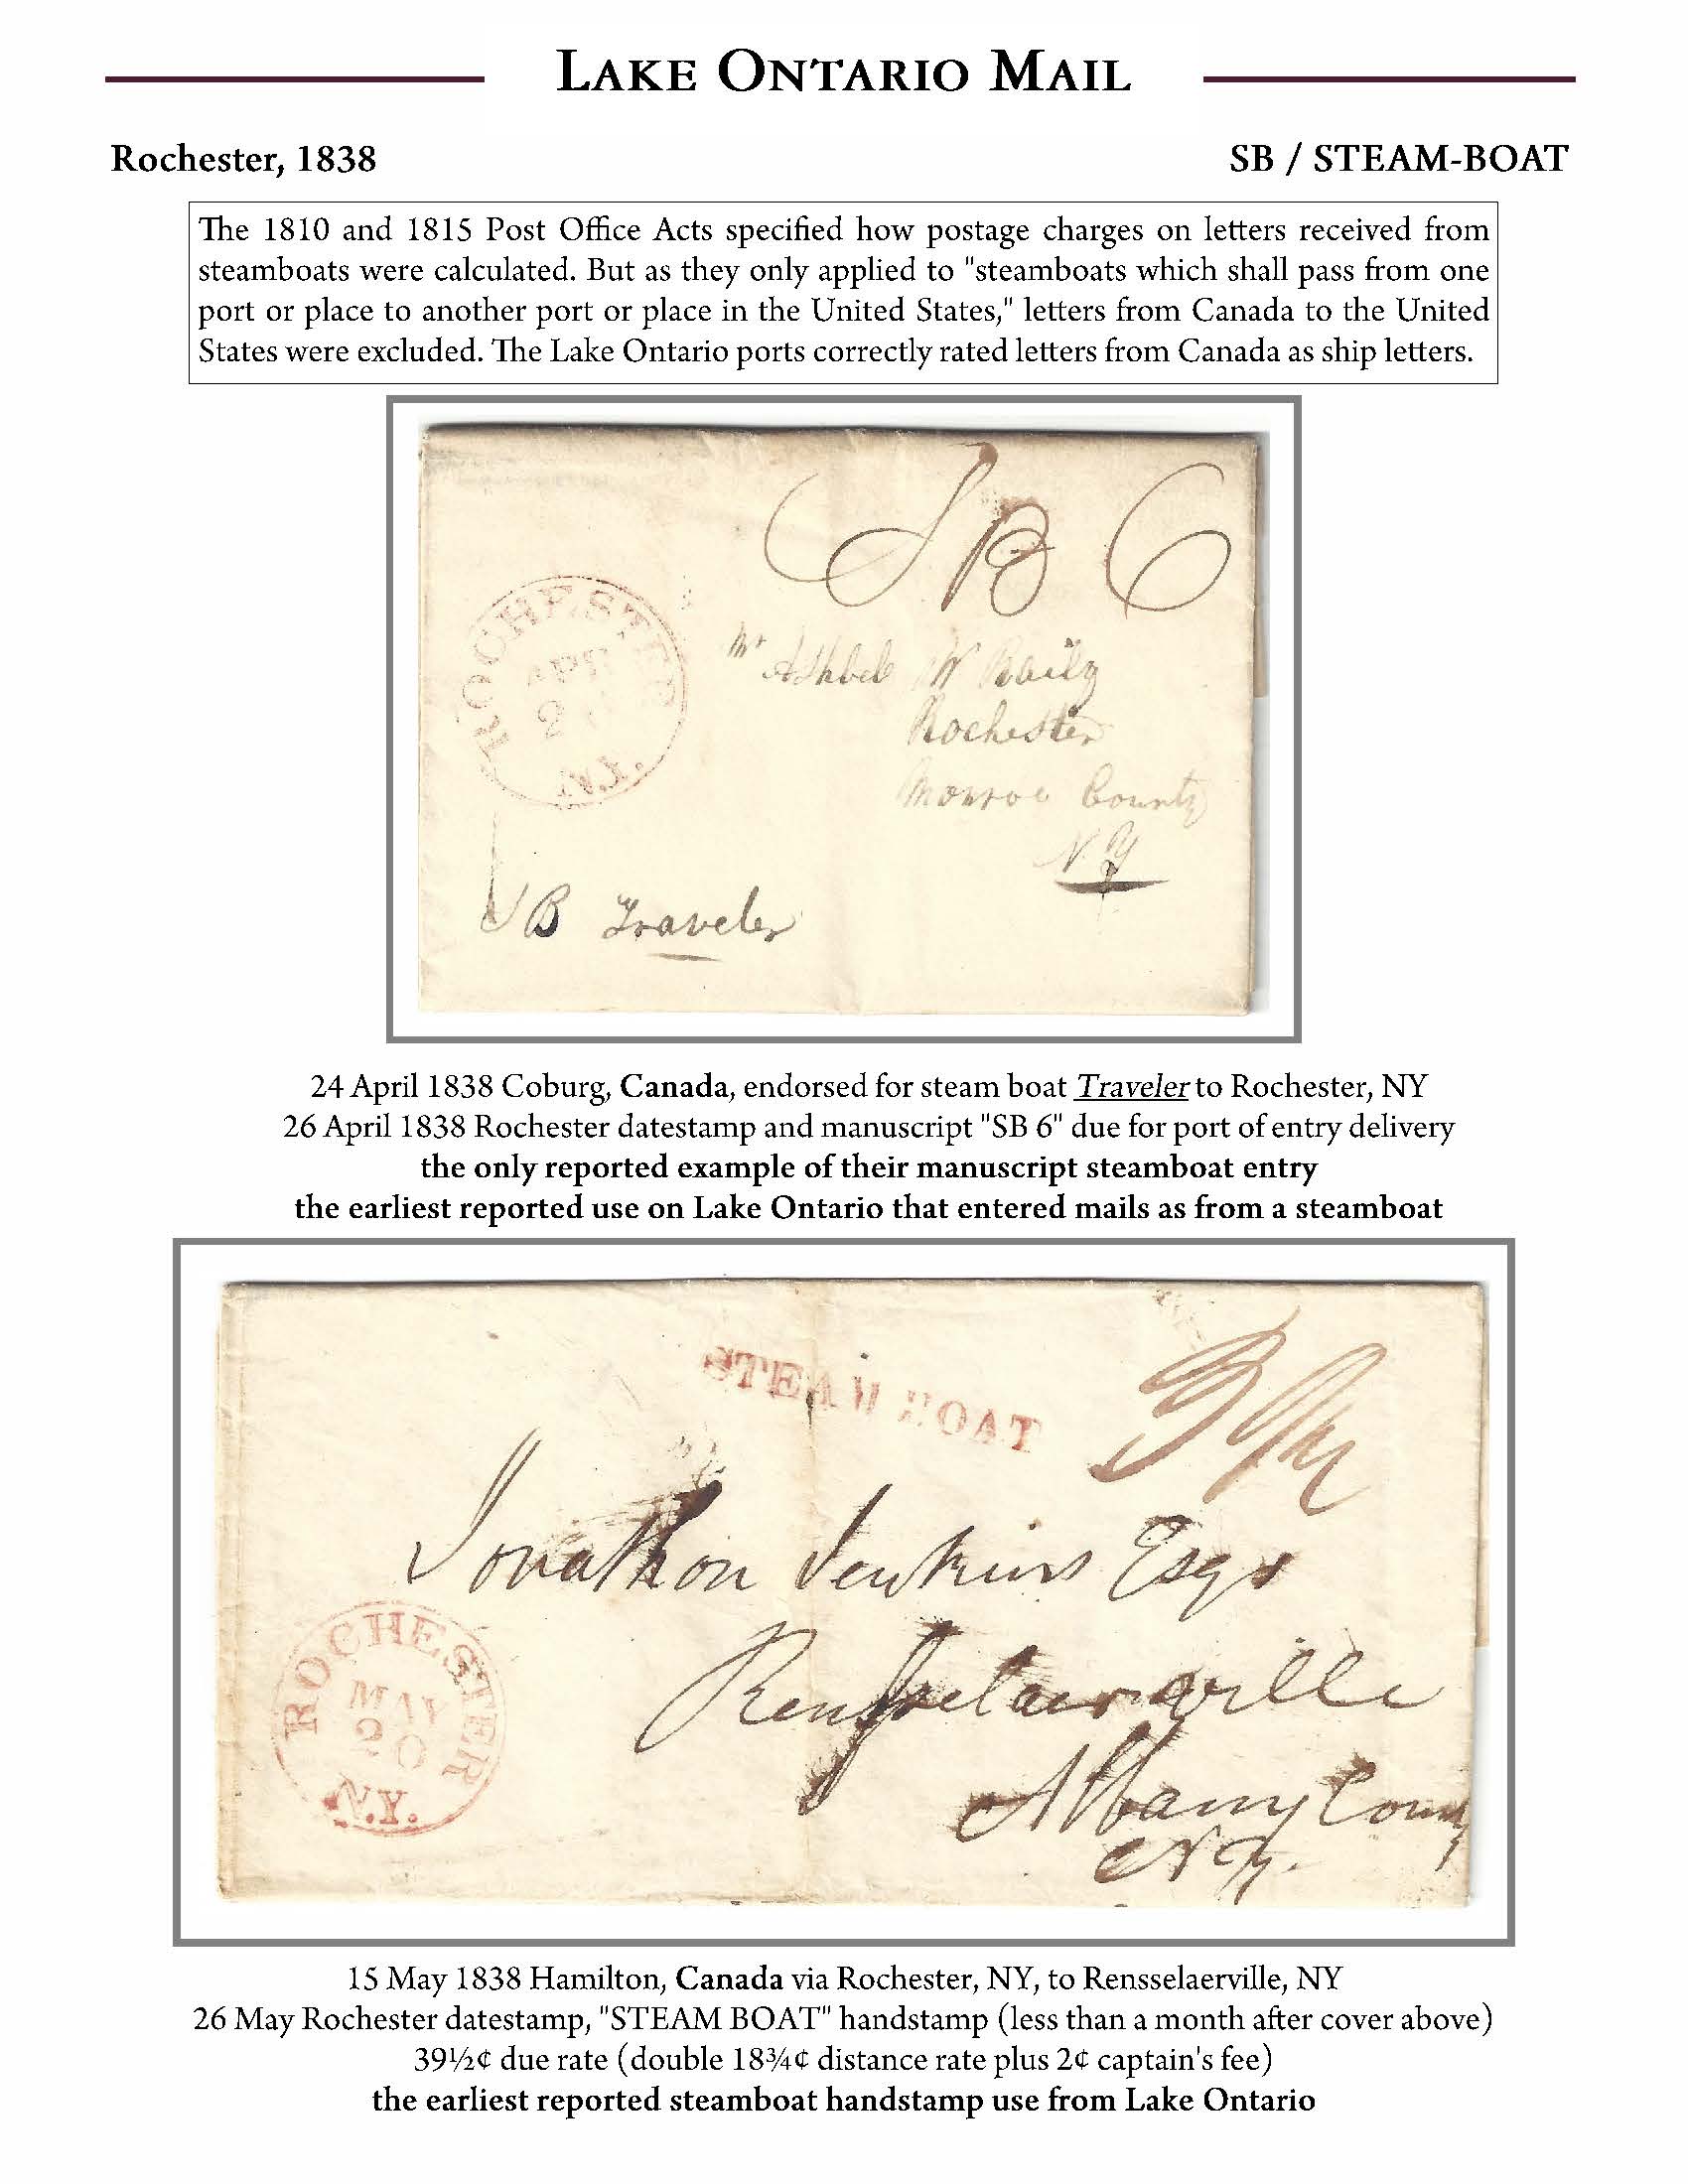 LAKE ONTARIO MAIL
Rochester, 1838
SB / STEAM-BOAT
The 1810 and 1815 Post Office Acts specified how postage charges on letters received from
steamboats were calculated. But as they only applied to "steamboats which shall pass from one
port or place to another port or place in the United States," letters from Canada to the United
States were excluded. The Lake Ontario ports correctly rated letters from Canada as ship letters.
SB 6
ROCHESTER
APR
N.Y.
Mr Ashbel W Baily
Rochester
Monroe County
N.Y
SB Traveler
24 April 1838 Coburg, Canada, endorsed for steam boat Traveler to Rochester, NY
26 April 1838 Rochester datestamp and manuscript "SB 6" due for port of entry delivery
the only reported example of their manuscript steamboat entry
the earliest reported use on Lake Ontario that entered mails as from a steamboat
STEAM BOAT
Jonathon Jenkins Esqr
Rensselaerville
Albany County
N.Y.
ROCHESTER
MAY
20
N.Y.
15 May 1838 Hamilton, Canada via Rochester, NY, to Rensselaerville, NY
26 May Rochester datestamp, "STEAM BOAT" handstamp (less than a month after cover above)
39½¢ due rate (double 18¾¢ distance rate plus 2¢ captain's fee)
the earliest reported steamboat handstamp use from Lake Ontario